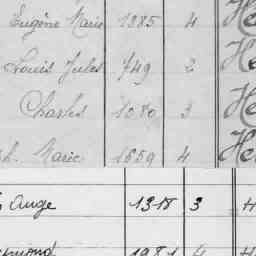 Eugène Marie 1285 4 He
Louis Jules 749 2 He
Charles 1080 3 He
ph. Marie 1659 4 He
Ange 1318 3